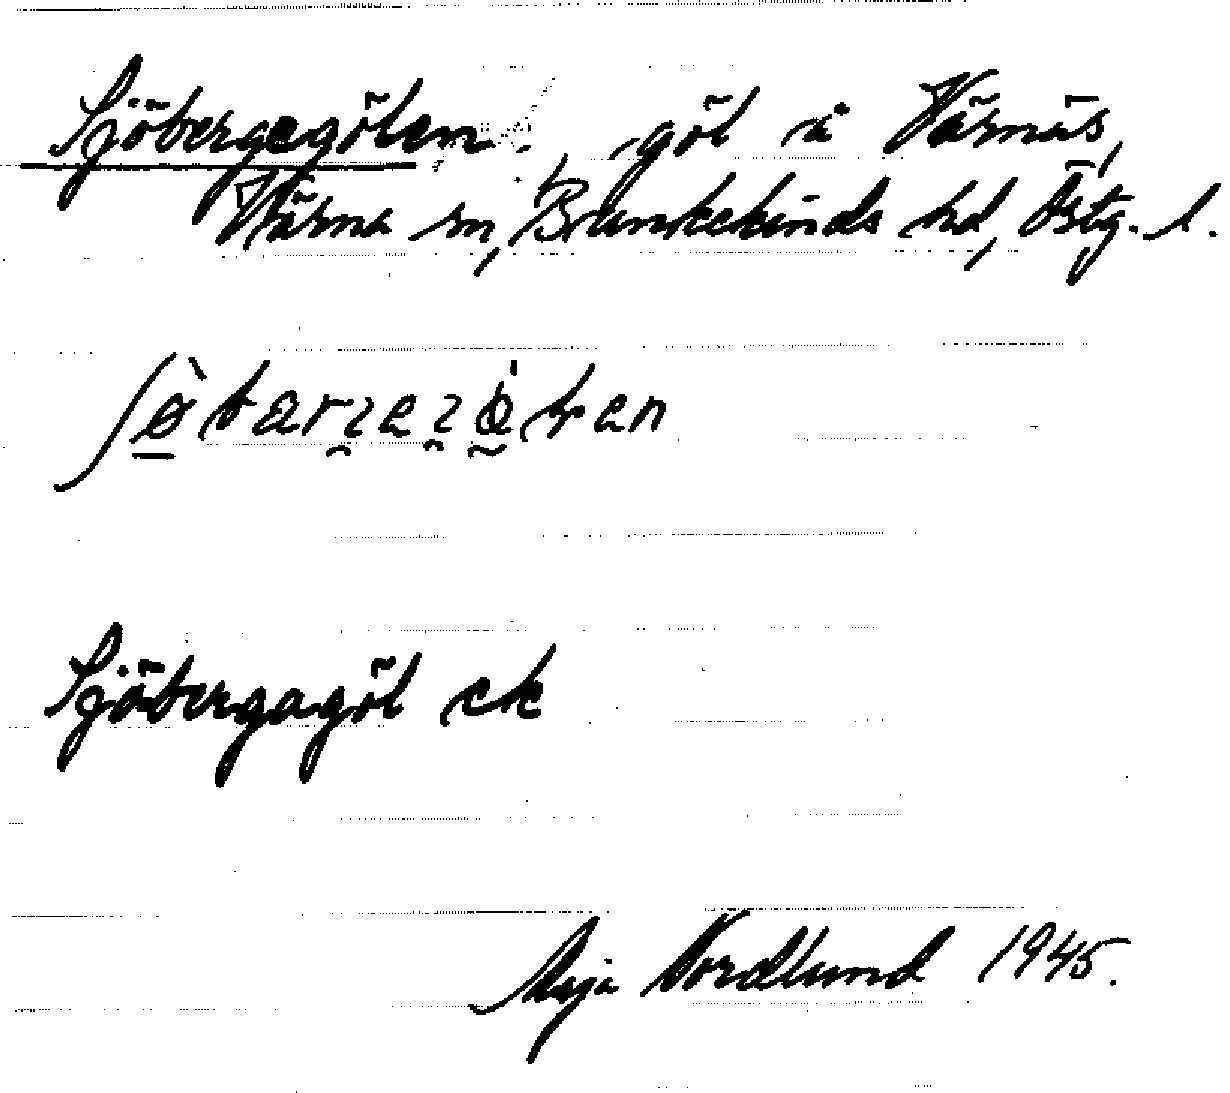 Sjöbergegölen, göl i Värnäs,
Värna sn, Bankekinds hd, Östg. l.
Sjöbergagöl ek
Maja Nordlund 1945.